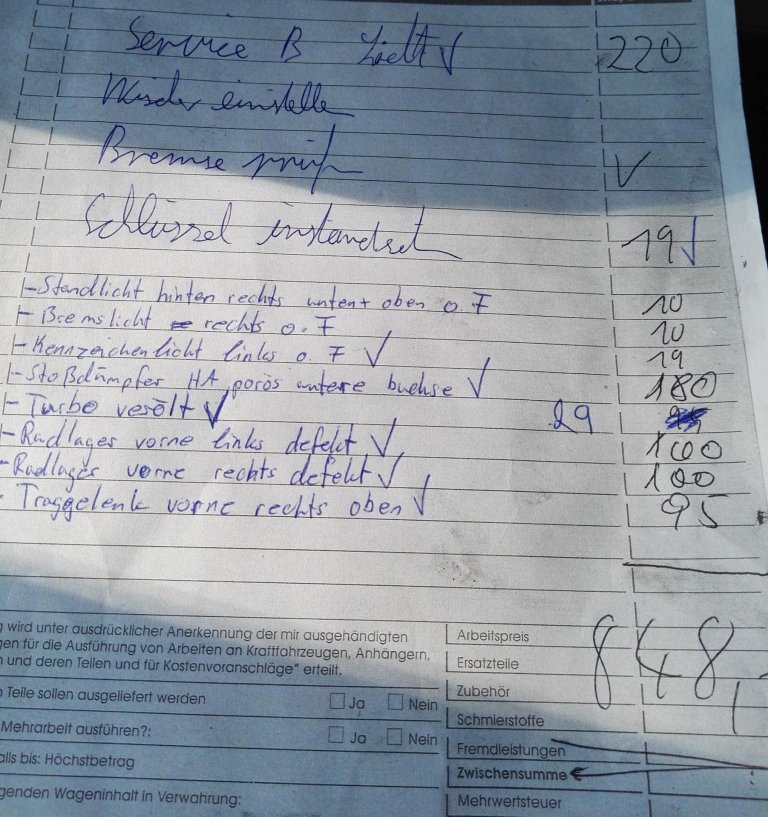 Service B √ 220
Wischer einstelle
Bremse prüf √
Schlüssel instandset 19 √
- Standlicht hinten rechts unten + oben o. F 10
- Bremslicht rechts o. F 10
- Kennzeichenlicht links o. F √ 19
- Stoßdämpfer HA porös untere buchse √ 180
- Turbo verölt √ 29
- Radlager vorne links defekt √ 100
- Radlager vorne rechts defekt √ 100
- Traggelenk vorne rechts oben √ 95
848,
wird unter ausdrücklicher Anerkennung der mir ausgehändigten
gen für die Ausführung von Arbeiten an Kraftfahrzeugen, Anhängern,
n und deren Teilen und für Kostenvoranschläge" erteilt.
Teile sollen ausgeliefert werden Ja Nein
Mehrarbeit ausführen?: Ja Nein
alls bis: Höchstbetrag
genden Wageninhalt in Verwahrung:
Arbeitspreis
Ersatzteile
Zubehör
Schmierstoffe
Fremdleistungen
Zwischensumme
Mehrwertsteuer